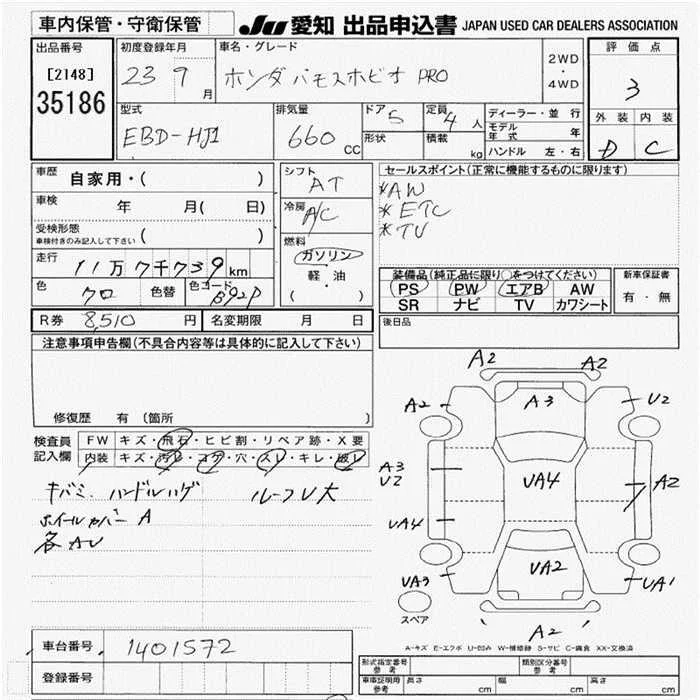 車内保管・守衛保管 JU 愛知 出品申込書 JAPAN USED CAR DEALERS ASSOCIATION
出品番号
[2148]
35186
初度登録年月
23 9 月
車名・グレード
ホンダ バモスホビオ PRO
2WD
・
4WD
評価点
3
外装 内装
D C
型式
EBD-HJ1
排気量
660 cc
ドア 5
形状
定員 4 人
積載 kg
ディーラー・並行
モデル年式 年
ハンドル 左・右
車歴
自家用・( )
車検 年 月( 日)
受検形態
車検付きのみ記入して下さい ( )
走行 11万7千739km
色 クロ 色替 色コード B92P
シフト AT
冷房 A/C
燃料
ガソリン
軽・油
( )
セールスポイント(正常に機能するものに限ります)
*AW
*ETC
*TV
装備品(純正品に限り○をつけてください)
PS PW エアB AW
SR ナビ TV カワシート
新車保証書
有・無
R券 8,510 円 名変期限 月 日
後日品
注意事項申告欄(不具合内容等は具体的に記入して下さい)
修復歴 有 (箇所 )
検査員記入欄
FW キズ・飛石・ヒビ割・リペア跡・X要
内装 キズ・汚レ・コゲ・穴・スレ・キレ・破レ
キバミ ハンドルハゲ ルーフU大
ホイールカバー A
各AU
A2 A2
A2 A3 U2
A3
U2 UA4 A2
UA4
UA3 UA2 UA1
スペア
A2
A-キズ E-エクボ U-凹み W-補修跡 S-サビ C-腐食 XX-交換済
車台番号 1401572
登録番号
形式指定番号 参考 類別区分番号 参考
車車証明用 参考 長さ cm 幅 cm 高さ cm